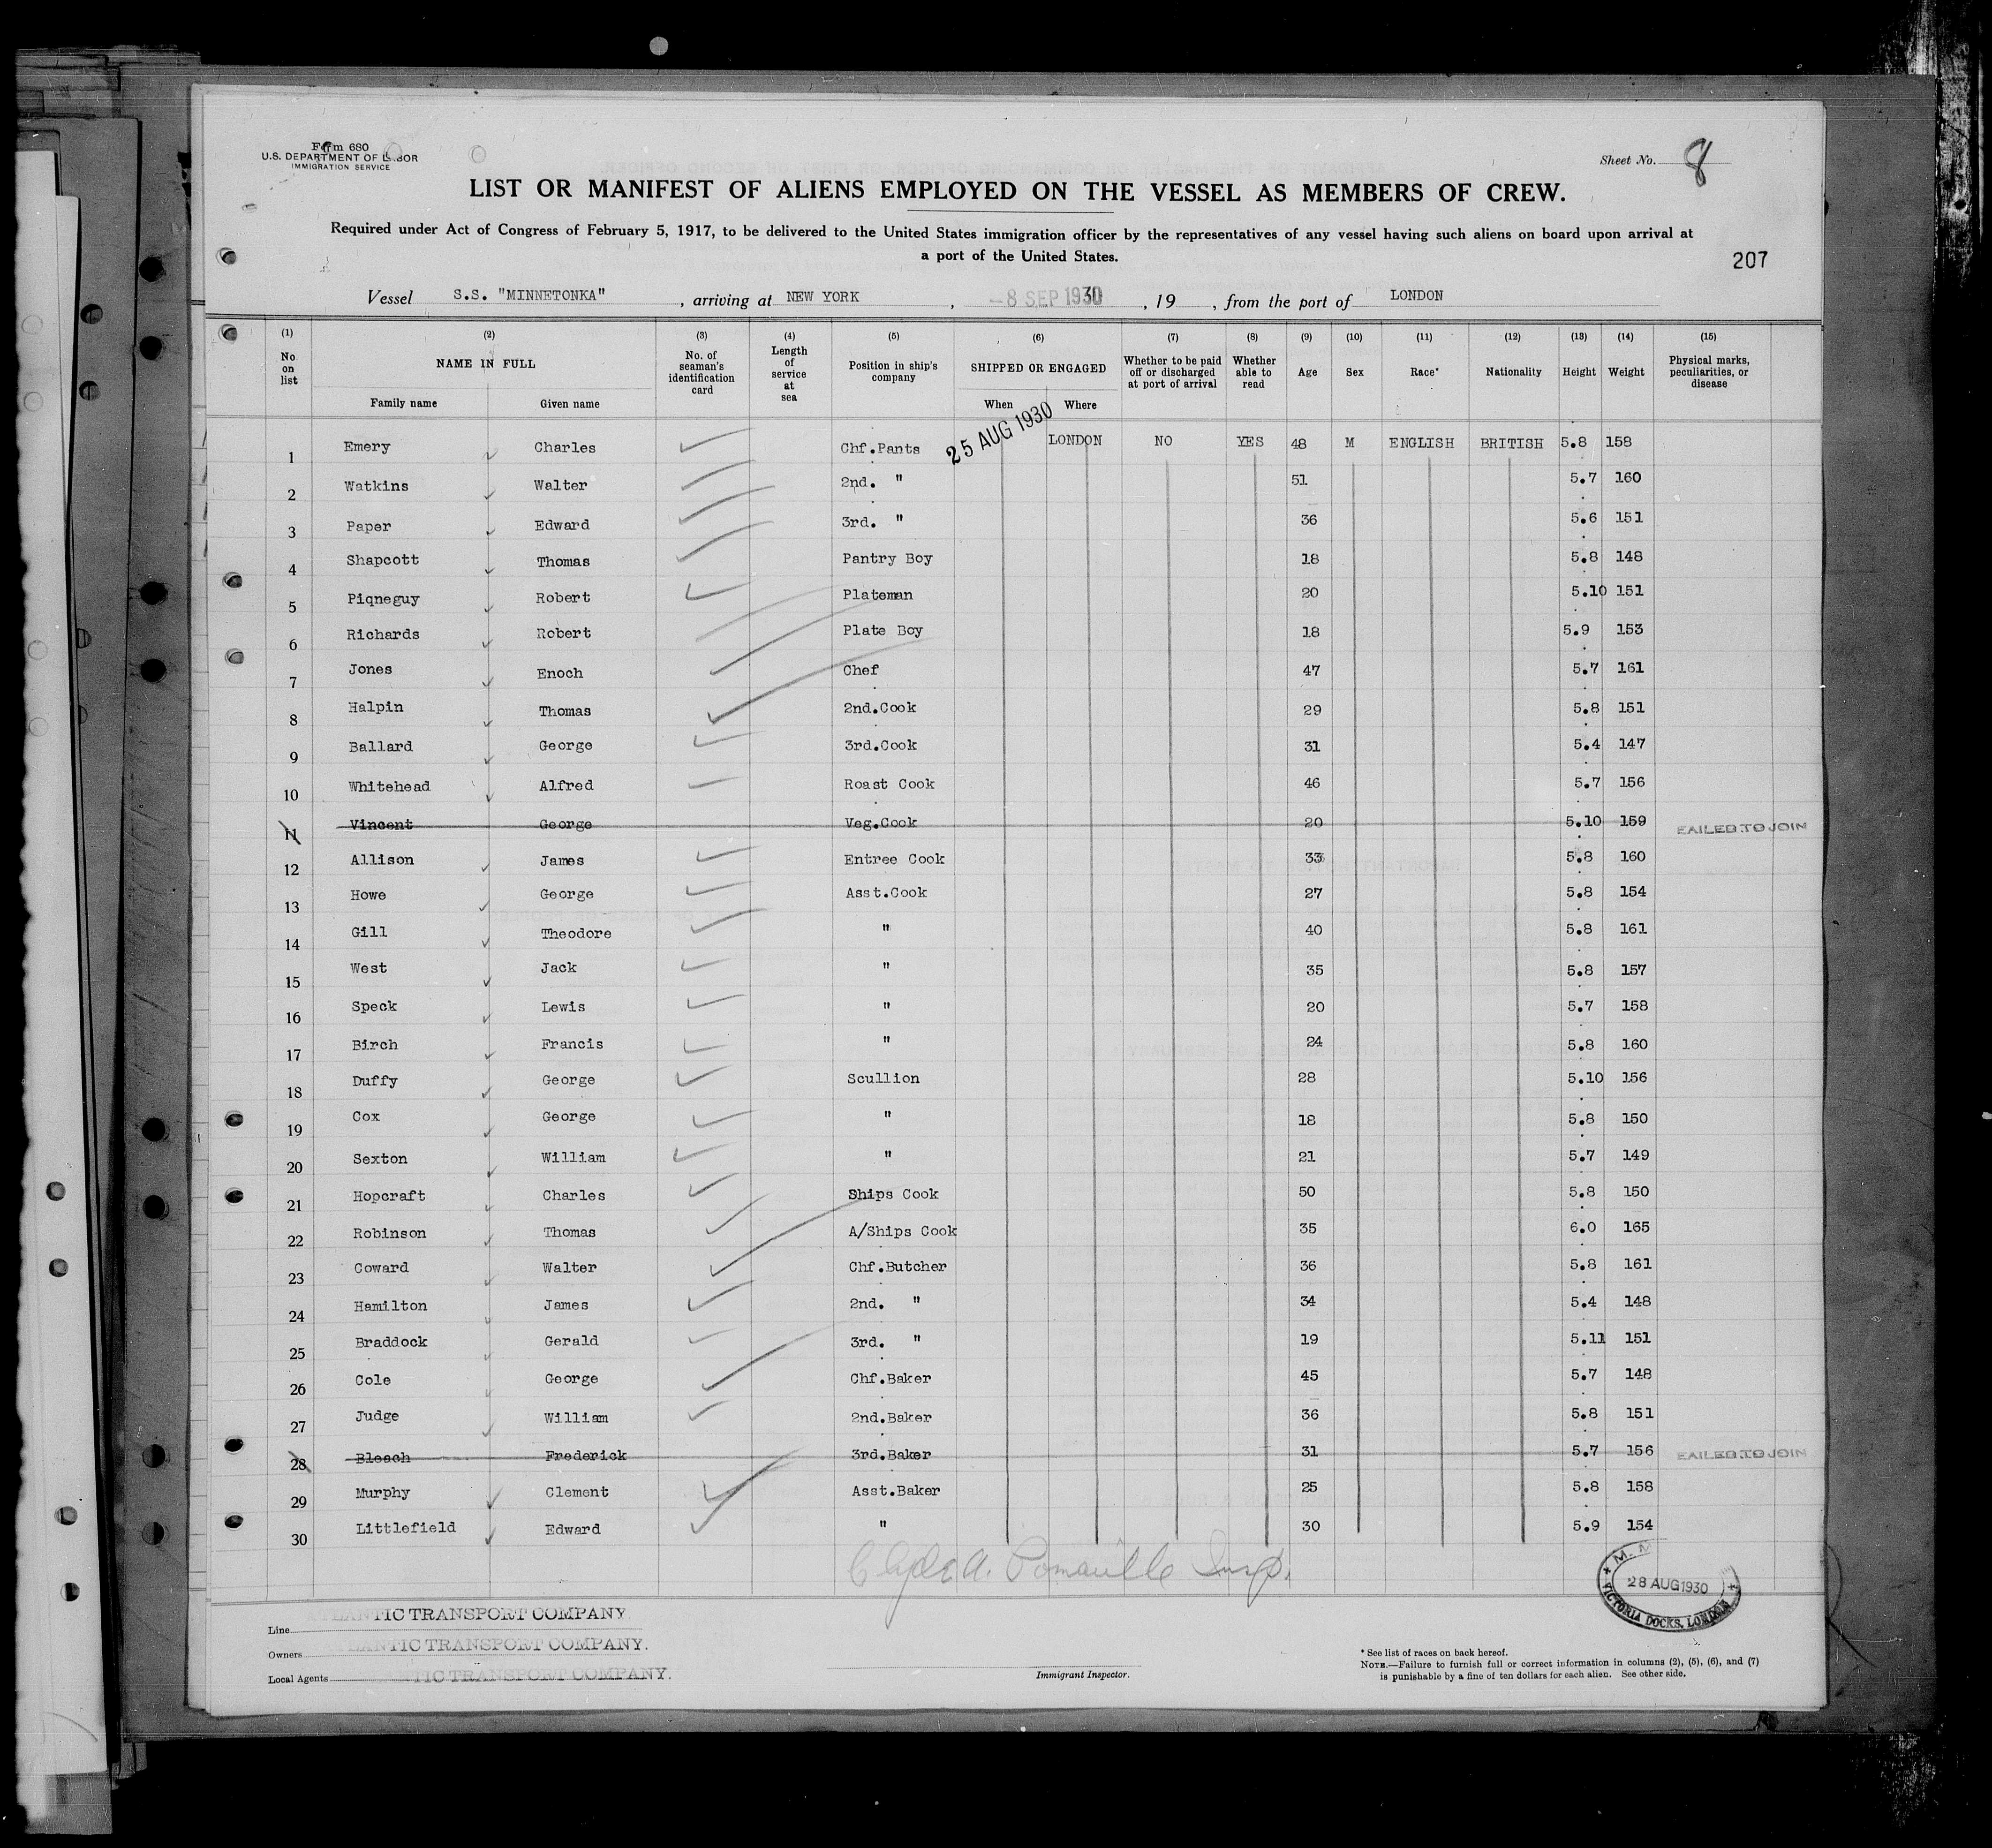 Form 680
U.S. DEPARTMENT OF LABOR
IMMIGRATION SERVICE
Sheet No. 8
LIST OR MANIFEST OF ALIENS EMPLOYED ON THE VESSEL AS MEMBERS OF CREW.
Required under Act of Congress of February 5, 1917, to be delivered to the United States immigration officer by the representatives of any vessel having such aliens on board upon arrival at
a port of the United States.
207
Vessel S.S. "MINNETONKA" , arriving at NEW YORK , -8 SEP 1930 , 19 , from the port of LONDON
(1) (2) (3) (4) (5) (6) (7) (8) (9) (10) (11) (12) (13) (14) (15)
No on list NAME IN FULL Family name Given name No. of seaman's identification card Length of service at sea Position in ship's company SHIPPED OR ENGAGED When Where Whether to be paid off or discharged at port of arrival Whether able to read Age Sex Race* Nationality Height Weight Physical marks, peculiarities, or disease
1 Emery Charles Chf.Pants 25 AUG 1930 LONDON NO YES 48 M ENGLISH BRITISH 5.8 158
2 Watkins Walter 2nd. " 51 5.7 160
3 Paper Edward 3rd. " 36 5.6 151
4 Shapcott Thomas Pantry Boy 18 5.8 148
5 Piqneguy Robert Plateman 20 5.10 151
6 Richards Robert Plate Boy 18 5.9 153
7 Jones Enoch Chef 47 5.7 161
8 Halpin Thomas 2nd.Cook 29 5.8 151
9 Ballard George 3rd.Cook 31 5.4 147
10 Whitehead Alfred Roast Cook 46 5.7 156
11 Vincent George Veg.Cook 20 5.10 159 FAILED TO JOIN
12 Allison James Entree Cook 33 5.8 160
13 Howe George Asst.Cook 27 5.8 154
14 Gill Theodore " 40 5.8 161
15 West Jack " 35 5.8 157
16 Speck Lewis " 20 5.7 158
17 Birch Francis " 24 5.8 160
18 Duffy George Scullion 28 5.10 156
19 Cox George " 18 5.8 150
20 Sexton William " 21 5.7 149
21 Hopcraft Charles Ships Cook 50 5.8 150
22 Robinson Thomas A/Ships Cook 35 6.0 165
23 Coward Walter Chf.Butcher 36 5.8 161
24 Hamilton James 2nd. " 34 5.4 148
25 Braddock Gerald 3rd. " 19 5.11 151
26 Cole George Chf.Baker 45 5.7 148
27 Judge William 2nd.Baker 36 5.8 151
28 Bleech Frederick 3rd.Baker 31 5.7 156 FAILED TO JOIN
29 Murphy Clement Asst.Baker 25 5.8 158
30 Littlefield Edward " 30 5.9 154
Insp.
28 AUG 1930
VICTORIA DOCKS, LONDON
Line ATLANTIC TRANSPORT COMPANY.
Owners ATLANTIC TRANSPORT COMPANY.
Local Agents TIC TRANSPORT COMPANY.
Immigrant Inspector.
* See list of races on back hereof.
NOTE.—Failure to furnish full or correct information in columns (2), (5), (6), and (7)
is punishable by a fine of ten dollars for each alien. See other side.